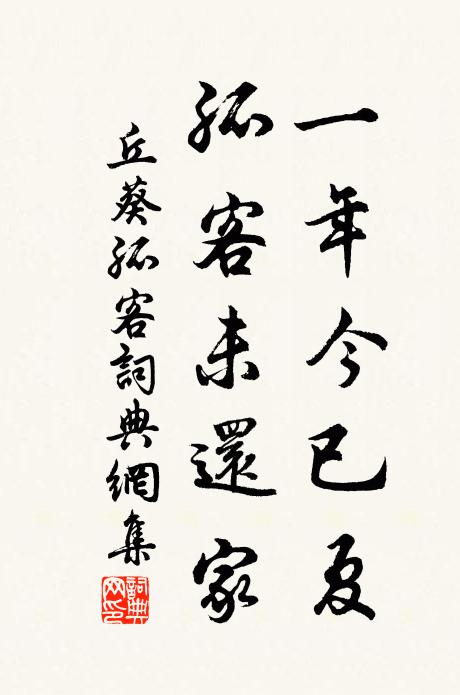 一年今已夏
孤客未還家
丘葵孤客詞典網集
詞典網印